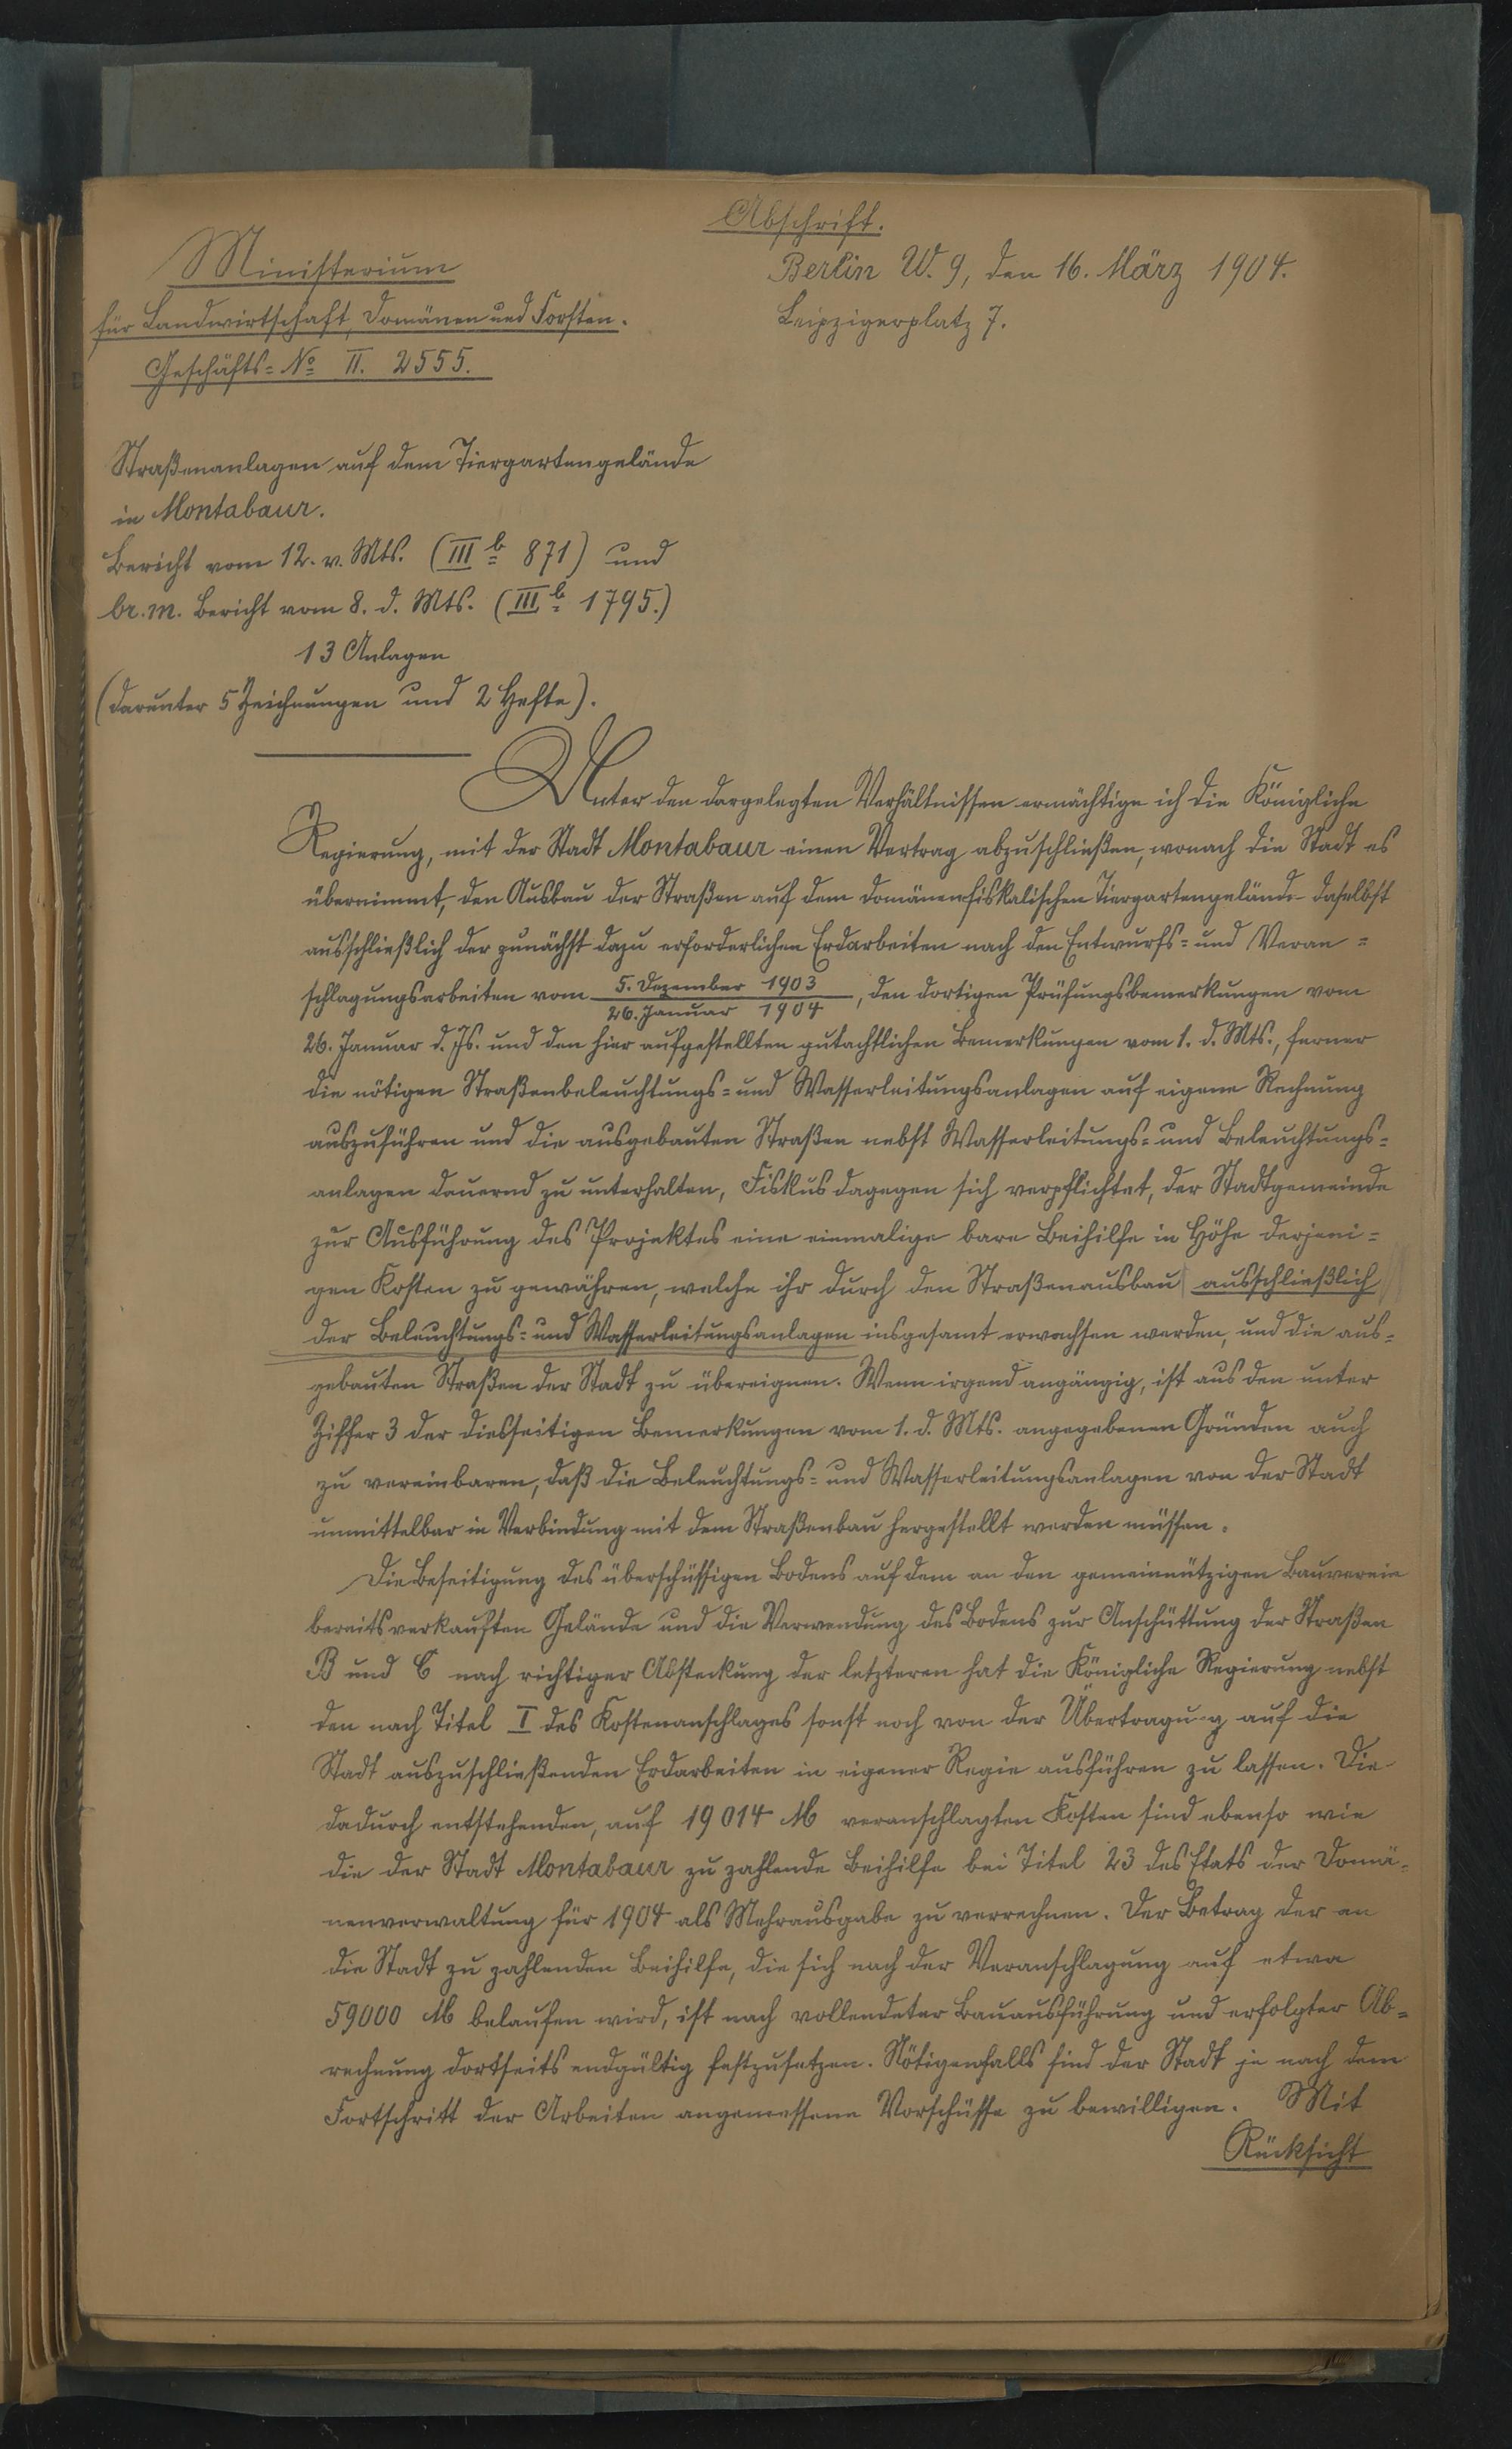 Abschrift.
Ministerium
für Landwirtschaft, Domänen und Forsten.
Geschäfts-No II. 2555.
Berlin W. 9, den 16. März 1904.
Leipzigerplatz 7.
Straßenanlagen auf dem Tiergartengelände
in Montabaur.
Bericht vom 12. v. Mts. (III b 871) und
br. m. Bericht vom 8. d. Mts. (III b 1795.)
13 Anlagen
(darunter 5 Zeichnungen und 2 Hefte).
Unter den dargelegten Verhältnissen ermächtige ich die Königliche
Regierung, mit der Stadt Montabaur einen Vertrag abzuschließen, wonach die Stadt es
übernimmt, den Ausbau der Straßen auf dem domänenfiskalischen Tiergartengelände daselbst
ausschließlich der zunächst dazu erforderlichen Erdarbeiten nach den Entwurfs- und Veran-
schlagungsarbeiten vom 5. Dezember 1903 / 26. Januar 1904, den dortigen Prüfungsbemerkungen vom
26. Januar d. Js. und den hier aufgestellten gutachtlichen Bemerkungen vom 1. d. Mts., ferner
die nötigen Straßenbeleuchtungs- und Wasserleitungsanlagen auf eigene Rechnung
auszuführen und die ausgebauten Straßen nebst Wasserleitungs- und Beleuchtungs-
anlagen dauernd zu unterhalten, Fiskus dagegen sich verpflichtet, der Stadtgemeinde
zur Ausführung des Projektes eine einmalige bare Beihilfe in Höhe derjeni-
gen Kosten zu gewähren, welche ihr durch den Straßenausbau ausschließlich
der Beleuchtungs- und Wasserleitungsanlagen insgesamt erwachsen werden, und die aus-
gebauten Straßen der Stadt zu übereignen. Wenn irgend angängig, ist aus den unter
Ziffer 3 der diesseitigen Bemerkungen vom 1. d. Mts. angegebenen Gründen auch
zu vereinbaren, daß die Beleuchtungs- und Wasserleitungsanlagen von der Stadt
unmittelbar in Verbindung mit dem Straßenbau hergestellt werden müssen.
Die Beseitigung des überschüssigen Bodens auf dem an den gemeinnützigen Bauverein
bereits verkauften Gelände und die Verwendung des Bodens zur Anschüttung der Straßen
B und C nach richtiger Absteckung der letzteren hat die Königliche Regierung nebst
den nach Titel I des Kostenanschlages sonst noch von der Übertragung auf die
Stadt auszuschließenden Erdarbeiten in eigener Regie ausführen zu lassen. Die
dadurch entstehenden, auf 19 014 M veranschlagten Kosten sind ebenso wie
die der Stadt Montabaur zu zahlende Beihilfe bei Titel 23 des Etats der Domä-
nenverwaltung für 1904 als Mehrausgabe zu verrechnen. Der Betrag der an
die Stadt zu zahlenden Beihilfe, die sich nach der Veranschlagung auf etwa
59000 M belaufen wird, ist nach vollendeter Bauausführung und erfolgter Ab-
rechnung dortseits endgültig festzusetzen. Nötigenfalls sind der Stadt je nach dem
Fortschritt der Arbeiten angemessene Vorschüsse zu bewilligen. Mit
Rücksicht